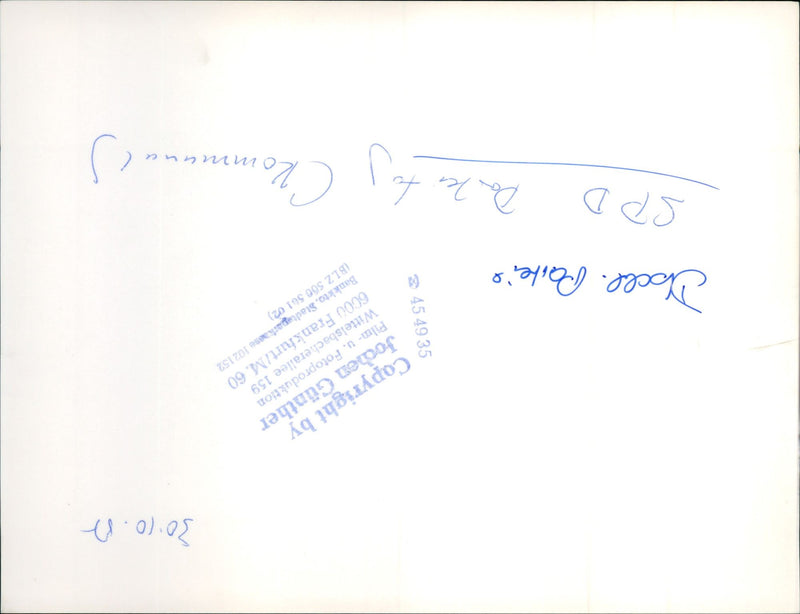 30.10.87
Copyright by
Jochen Günther
Film- u. Fotoproduktion
Wittelsbacherallee 159
6000 Frankfurt/M. 60
Bankkto. Stadtsparkasse 102152
(BLZ 500 501 02)
☎ 454935
SPD Parteitag (Kommunal)